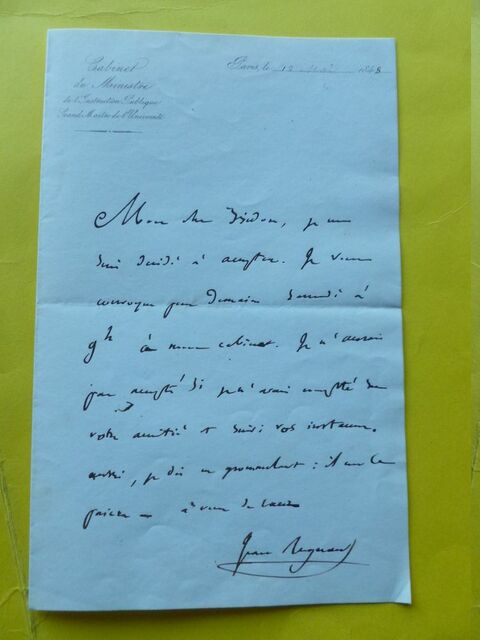 Cabinet
du Ministre
de l'Instruction Publique
Grand Maître de l'Université
Paris, le 12 Mai 1848
Mon cher Isidore, je me
suis décidé à accepter. Je vous
convoque pour demain Samedi à
9h à mon cabinet. Je n'aurais
pas accepté si je n'avais compté sur
votre amitié et suivi vos instances.
aussi, je dis en grommelant : il me le
paiera — à vous de cœur
Jean Reynaud